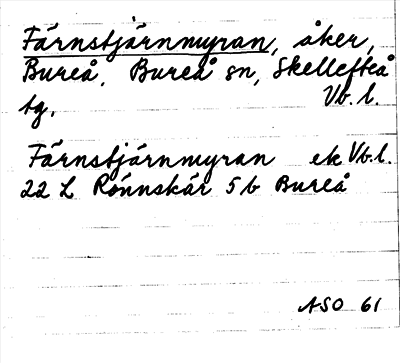 Färnstjärnmyran, åker,
Bureå, Bureå sn, Skellefteå
tg, Vb. l.
Färnstjärnmyran ek Vb. l.
22 L Rönnskär 5 b Bureå
ASO 61